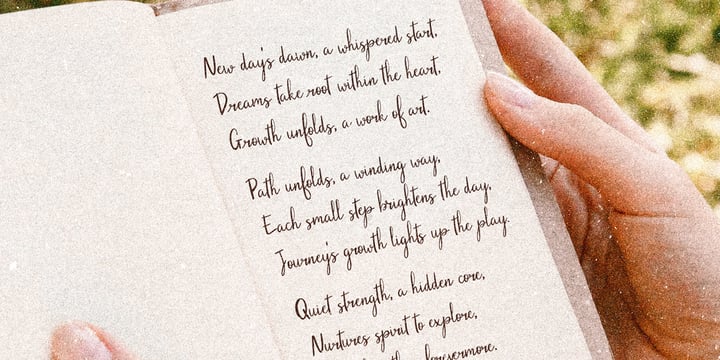 New day's dawn, a whispered start,
Dreams take root within the heart,
Growth unfolds, a work of art.
Path unfolds, a winding way,
Each small step brightens the day,
Journey's growth lights up the play.
Quiet strength, a hidden core,
Nurtures spirit to explore,
forevermore.